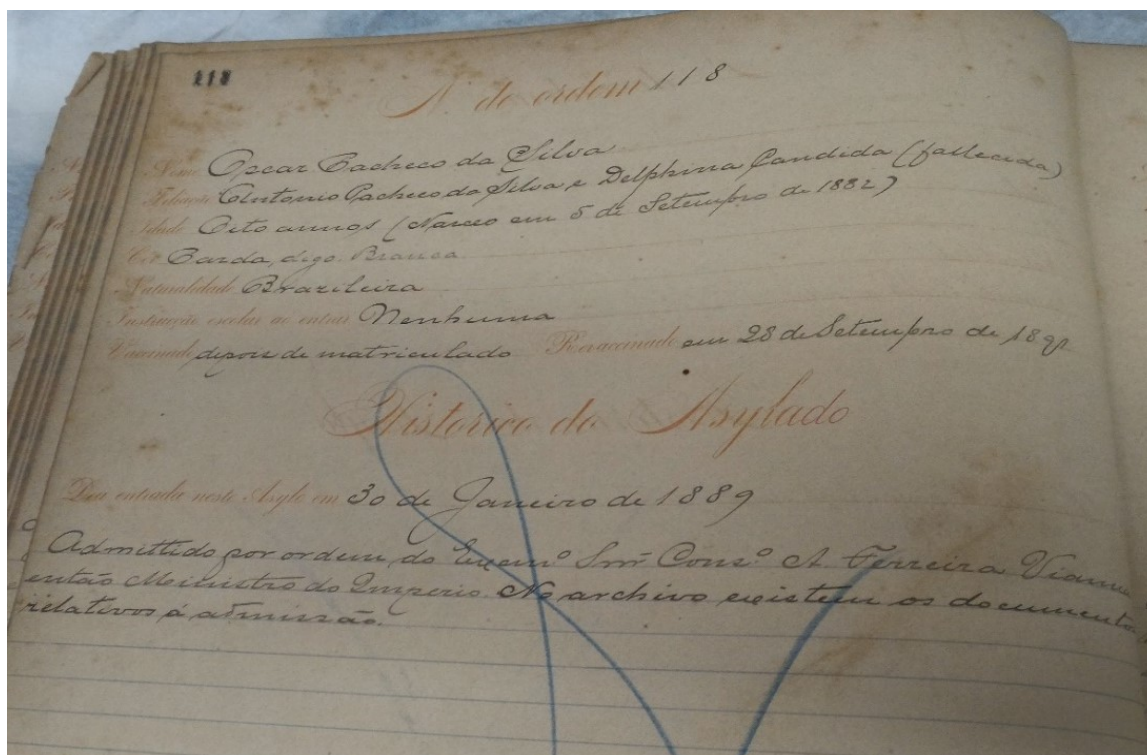 118
N. de ordem 118
Nome Oscar Pacheco da Silva
Filiação Antonio Pacheco da Silva e Delphina Candida (fallecida)
Idade Oito annos (Nasceo em 5 de Setembro de 1882)
Côr Parda, digo Branca
Naturalidade Brazileira
Instrucção escolar ao entrar Nenhuma
Vaccinado depois de matriculado Revaccinado em 28 de Setembro de
Historico do Asylado
Deu entrada neste Asylo em 30 de Janeiro de 1889
Admittido por ordem do Exmº Snr Consº A. Ferreira Vianna
então Ministro do Imperio No archivo existem os documentos
relativos á admissão.